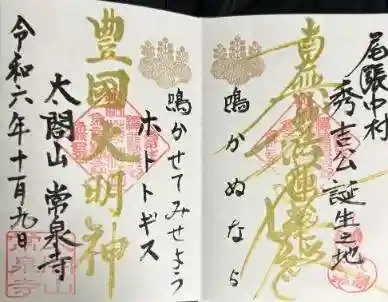 尾張中村
秀吉公誕生之地
南無妙法蓮華経
鳴かぬなら
鳴かせてみせよう
ホトトギス
豊國大明神
太閤山 常泉寺
令和六年十一月九日